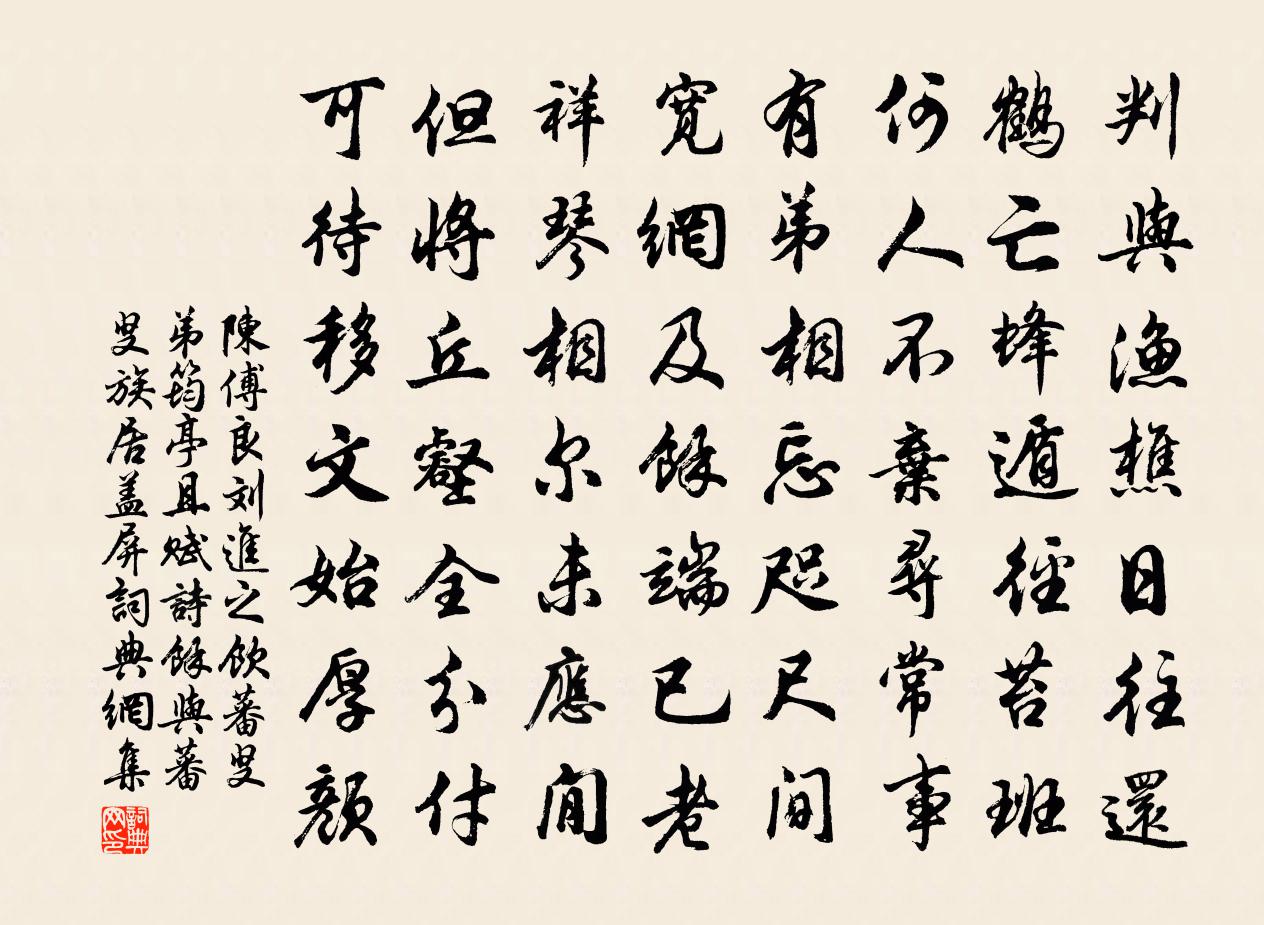 判與漁樵日往還
鶴亡蜂遁徑苔班
何人不棄尋常事
有弟相忘咫尺間
寬網及餘端已老
祥琴相尔未應閒
但將丘壑全分付
可待移文始厚顏
陳傅良刘進之飲蕃叟
弟筠亭且赋詩餘與蕃
叟族居盖屏詞典網集
詞典
网印